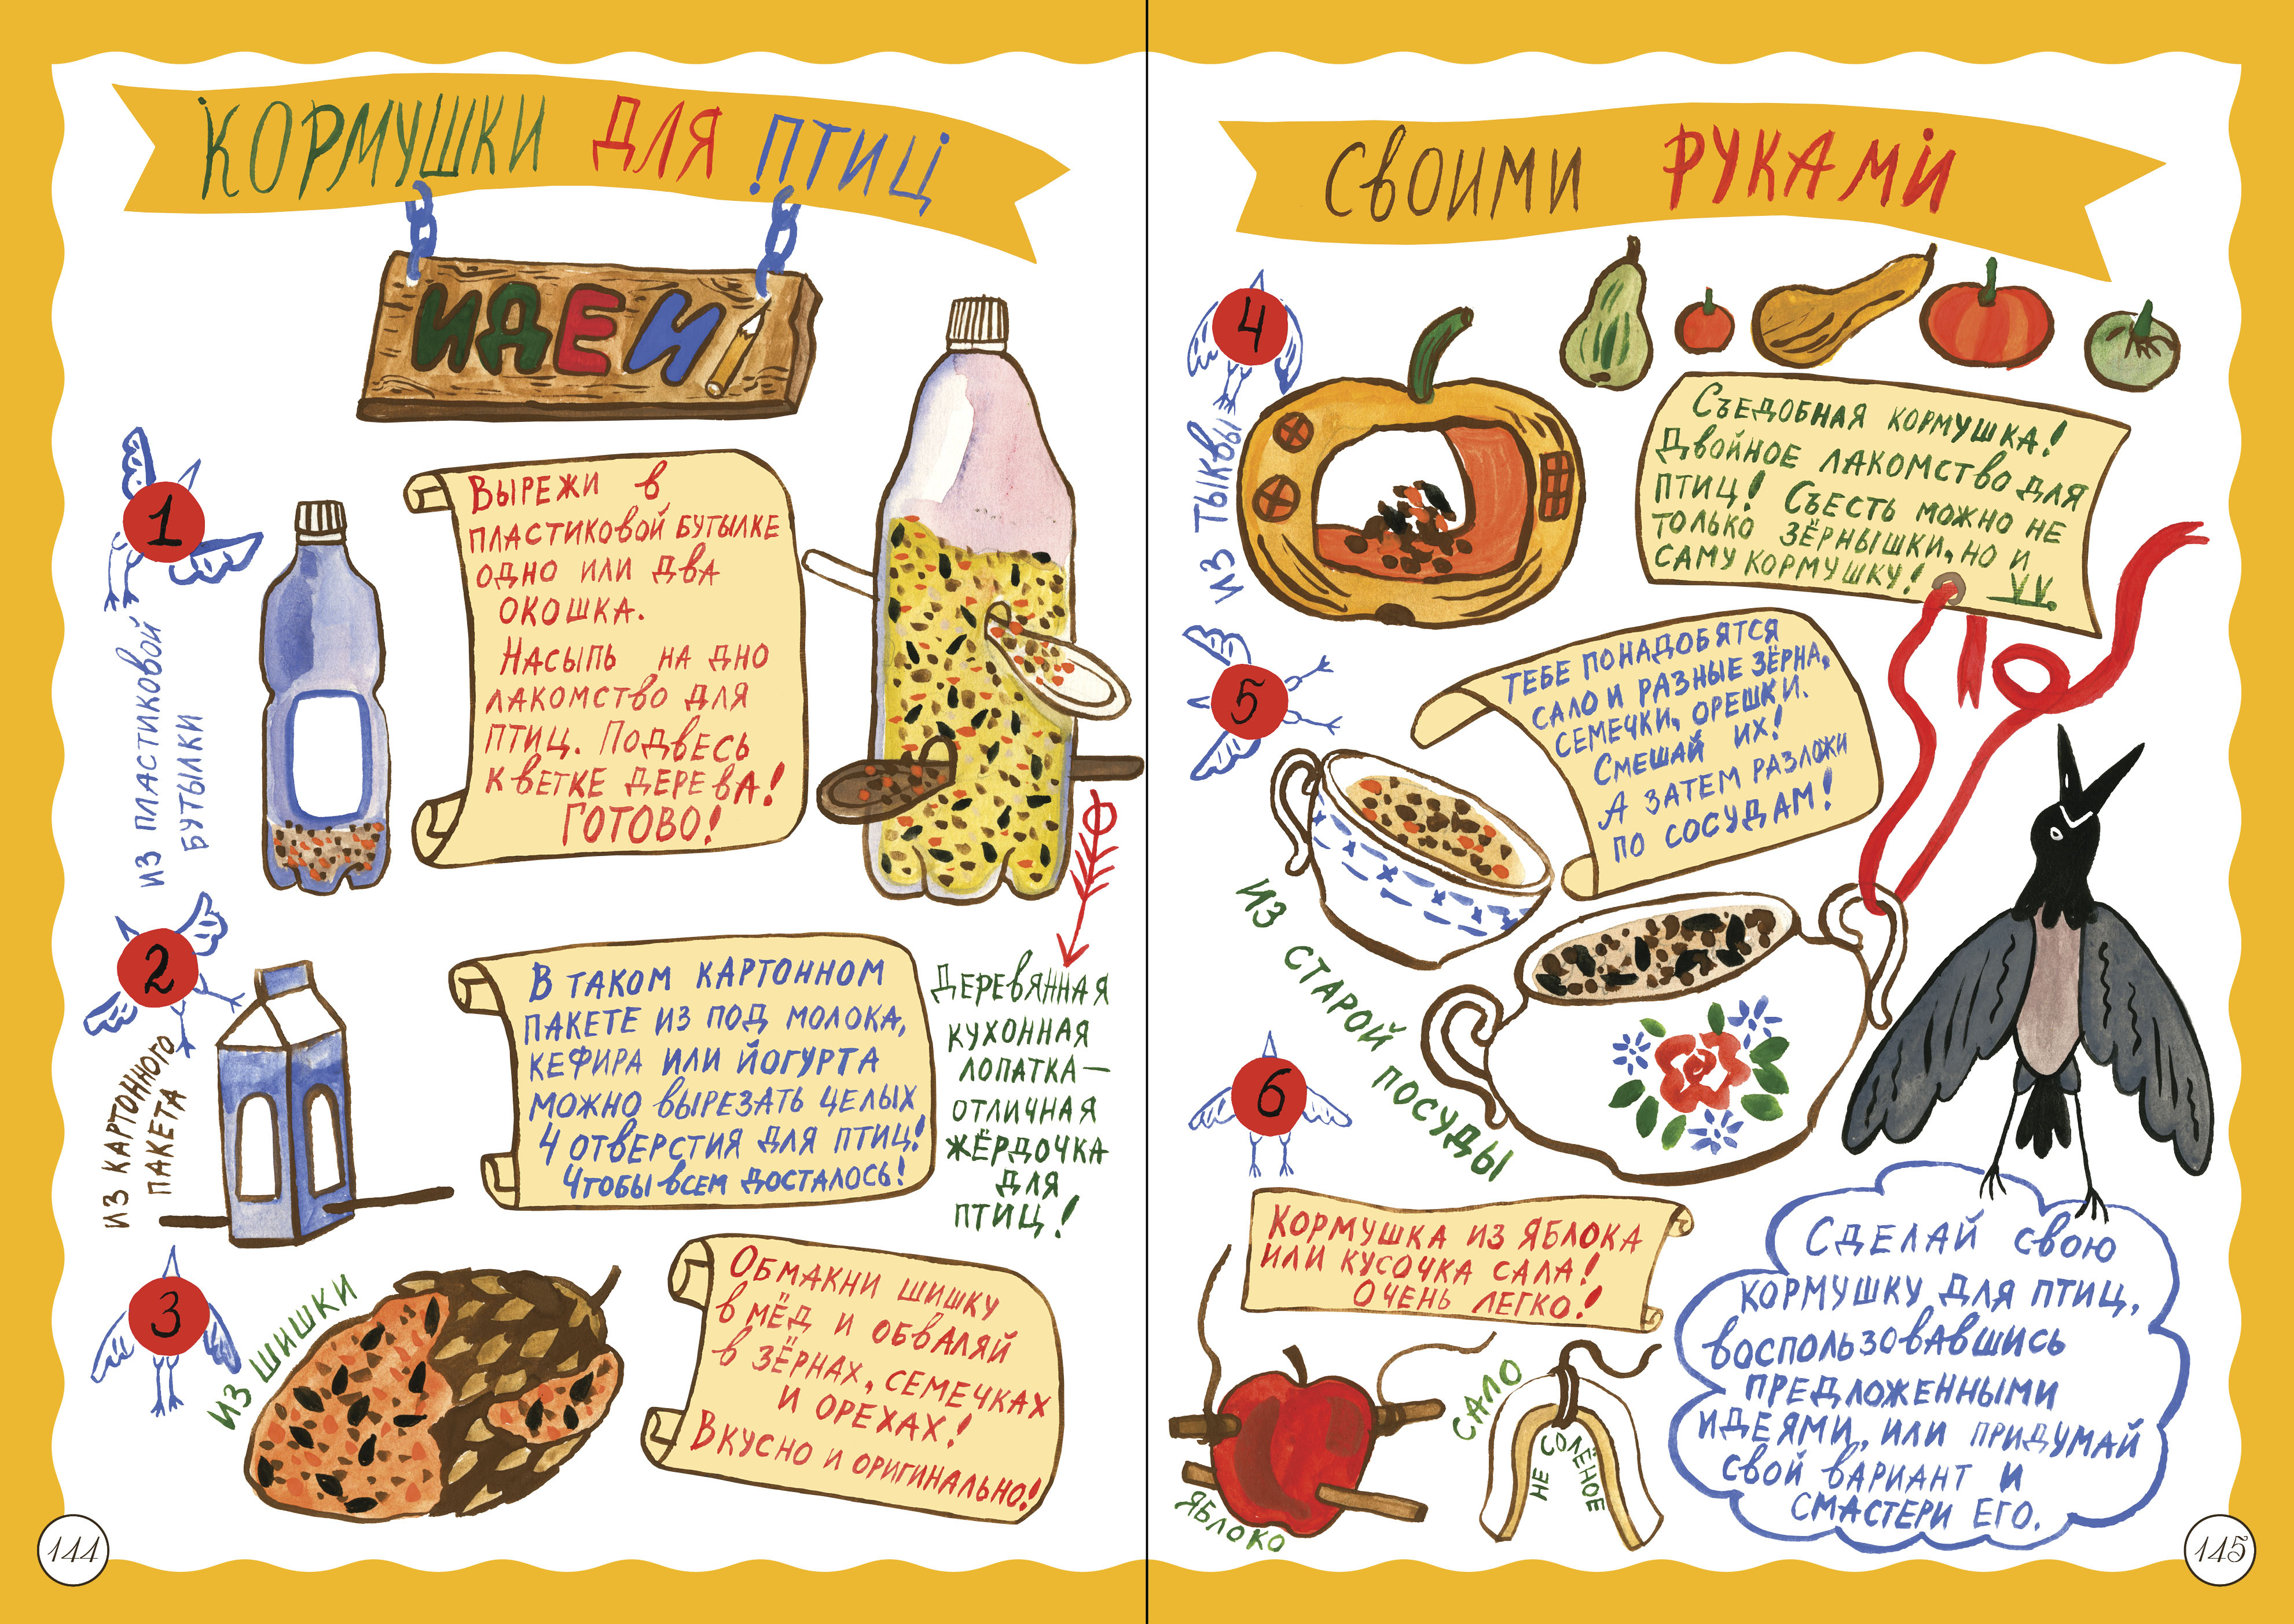 КОРМУШКИ ДЛЯ ПТИЦ
ИДЕИ
1
ИЗ ПЛАСТИКОВОЙ
БУТЫЛКИ
ВЫРЕЖИ В
ПЛАСТИКОВОЙ БУТЫЛКЕ
ОДНО ИЛИ ДВА
ОКОШКА.
НАСЫПЬ НА ДНО
ЛАКОМСТВО ДЛЯ
ПТИЦ. ПОДВЕСЬ
К ВЕТКЕ ДЕРЕВА!
ГОТОВО!
ДЕРЕВЯННАЯ
КУХОННАЯ
ЛОПАТКА—
ОТЛИЧНАЯ
ЖЁРДОЧКА
ДЛЯ
ПТИЦ!
2
ИЗ КАРТОННОГО
ПАКЕТА
В ТАКОМ КАРТОННОМ
ПАКЕТЕ ИЗ ПОД МОЛОКА,
КЕФИРА ИЛИ ЙОГУРТА
МОЖНО ВЫРЕЗАТЬ ЦЕЛЫХ
4 ОТВЕРСТИЯ ДЛЯ ПТИЦ!
ЧТОБЫ ВСЕМ ДОСТАЛОСЬ!
3
ИЗ ШИШКИ
ОБМАКНИ ШИШКУ
В МЁД И ОБВАЛЯЙ
В ЗЁРНАХ, СЕМЕЧКАХ
И ОРЕХАХ!
ВКУСНО И ОРИГИНАЛЬНО!
144
СВОИМИ РУКАМИ
4
ИЗ ТЫКВЫ
СЪЕДОБНАЯ КОРМУШКА!
ДВОЙНОЕ ЛАКОМСТВО ДЛЯ
ПТИЦ! СЪЕСТЬ МОЖНО НЕ
ТОЛЬКО ЗЁРНЫШКИ, НО И
САМУ КОРМУШКУ!
5
ИЗ СТАРОЙ ПОСУДЫ
ТЕБЕ ПОНАДОБЯТСЯ
САЛО И РАЗНЫЕ ЗЁРНА,
СЕМЕЧКИ, ОРЕШКИ.
СМЕШАЙ ИХ!
А ЗАТЕМ РАЗЛОЖИ
ПО СОСУДАМ!
6
КОРМУШКА ИЗ ЯБЛОКА
ИЛИ КУСОЧКА САЛА!
ОЧЕНЬ ЛЕГКО!
ЯБЛОКО
САЛО
НЕ СОЛЁНОЕ
СДЕЛАЙ СВОЮ
КОРМУШКУ ДЛЯ ПТИЦ,
ВОСПОЛЬЗОВАВШИСЬ
ПРЕДЛОЖЕННЫМИ
ИДЕЯМИ, ИЛИ ПРИДУМАЙ
СВОЙ ВАРИАНТ И
СМАСТЕРИ ЕГО.
145